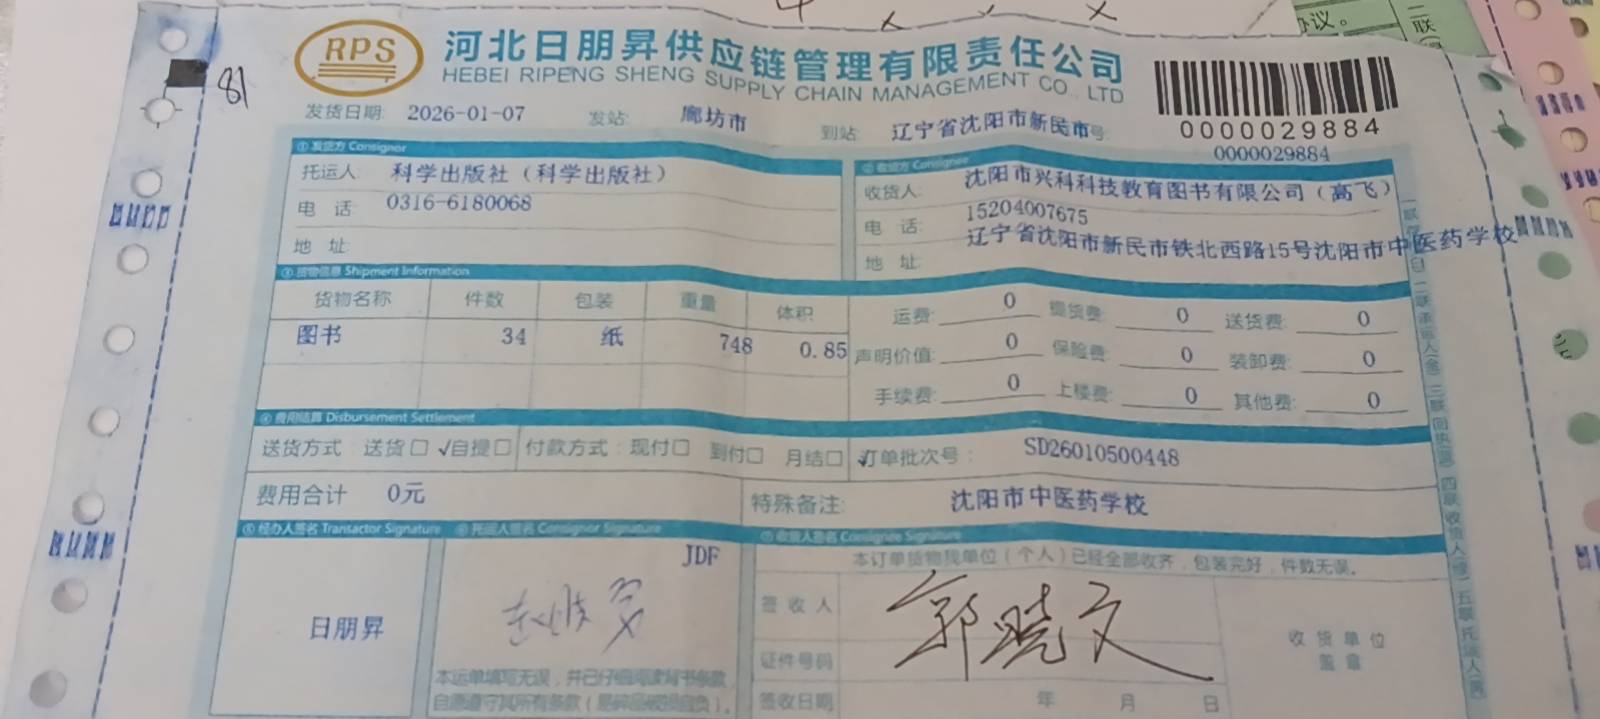 协议。
二联
81
RPS
河北日朋昇供应链管理有限责任公司
HEBEI RIPENG SHENG SUPPLY CHAIN MANAGEMENT CO., LTD
发货日期: 2026-01-07 发站: 廊坊市 到站: 辽宁省沈阳市新民市号
0000029884
0000029884
①发货方 Consignor
②收货方 Consignee
托运人 科学出版社（科学出版社）
收货人: 沈阳市兴科科技教育图书有限公司（高飞）
电 话 0316-6180068
电 话: 15204007675
地 址:
地 址: 辽宁省沈阳市新民市铁北西路15号沈阳市中医药学校
③货物信息 Shipment Information
货物名称 件数 包装 重量 体积
图书 34 纸 748 0.85
运费: 0 提货费: 0 送货费: 0
声明价值: 0 保险费: 0 装卸费: 0
手续费: 0 上楼费: 0 其他费: 0
④费用结算 Disbursement Settlement
送货方式: 送货□ √自提□ 付款方式: 现付□ 到付□ 月结□ √订单批次号: SD26010500448
费用合计 0元
特殊备注: 沈阳市中医药学校
⑤经办人签名 Transactor Signature
⑥托运人签名 Consignor Signature
⑦收货人签名 Consignee Signature
日朋昇
JDF
本运单填写无误，并已仔细阅读背书条款
自愿遵守其所有条款（易碎品破损自负）。
本订单货物我单位（个人）已经全部收齐，包装完好，件数无误。
签收人 郭晓文
证件号码
签收日期 年 月 日
收货单位
盖章